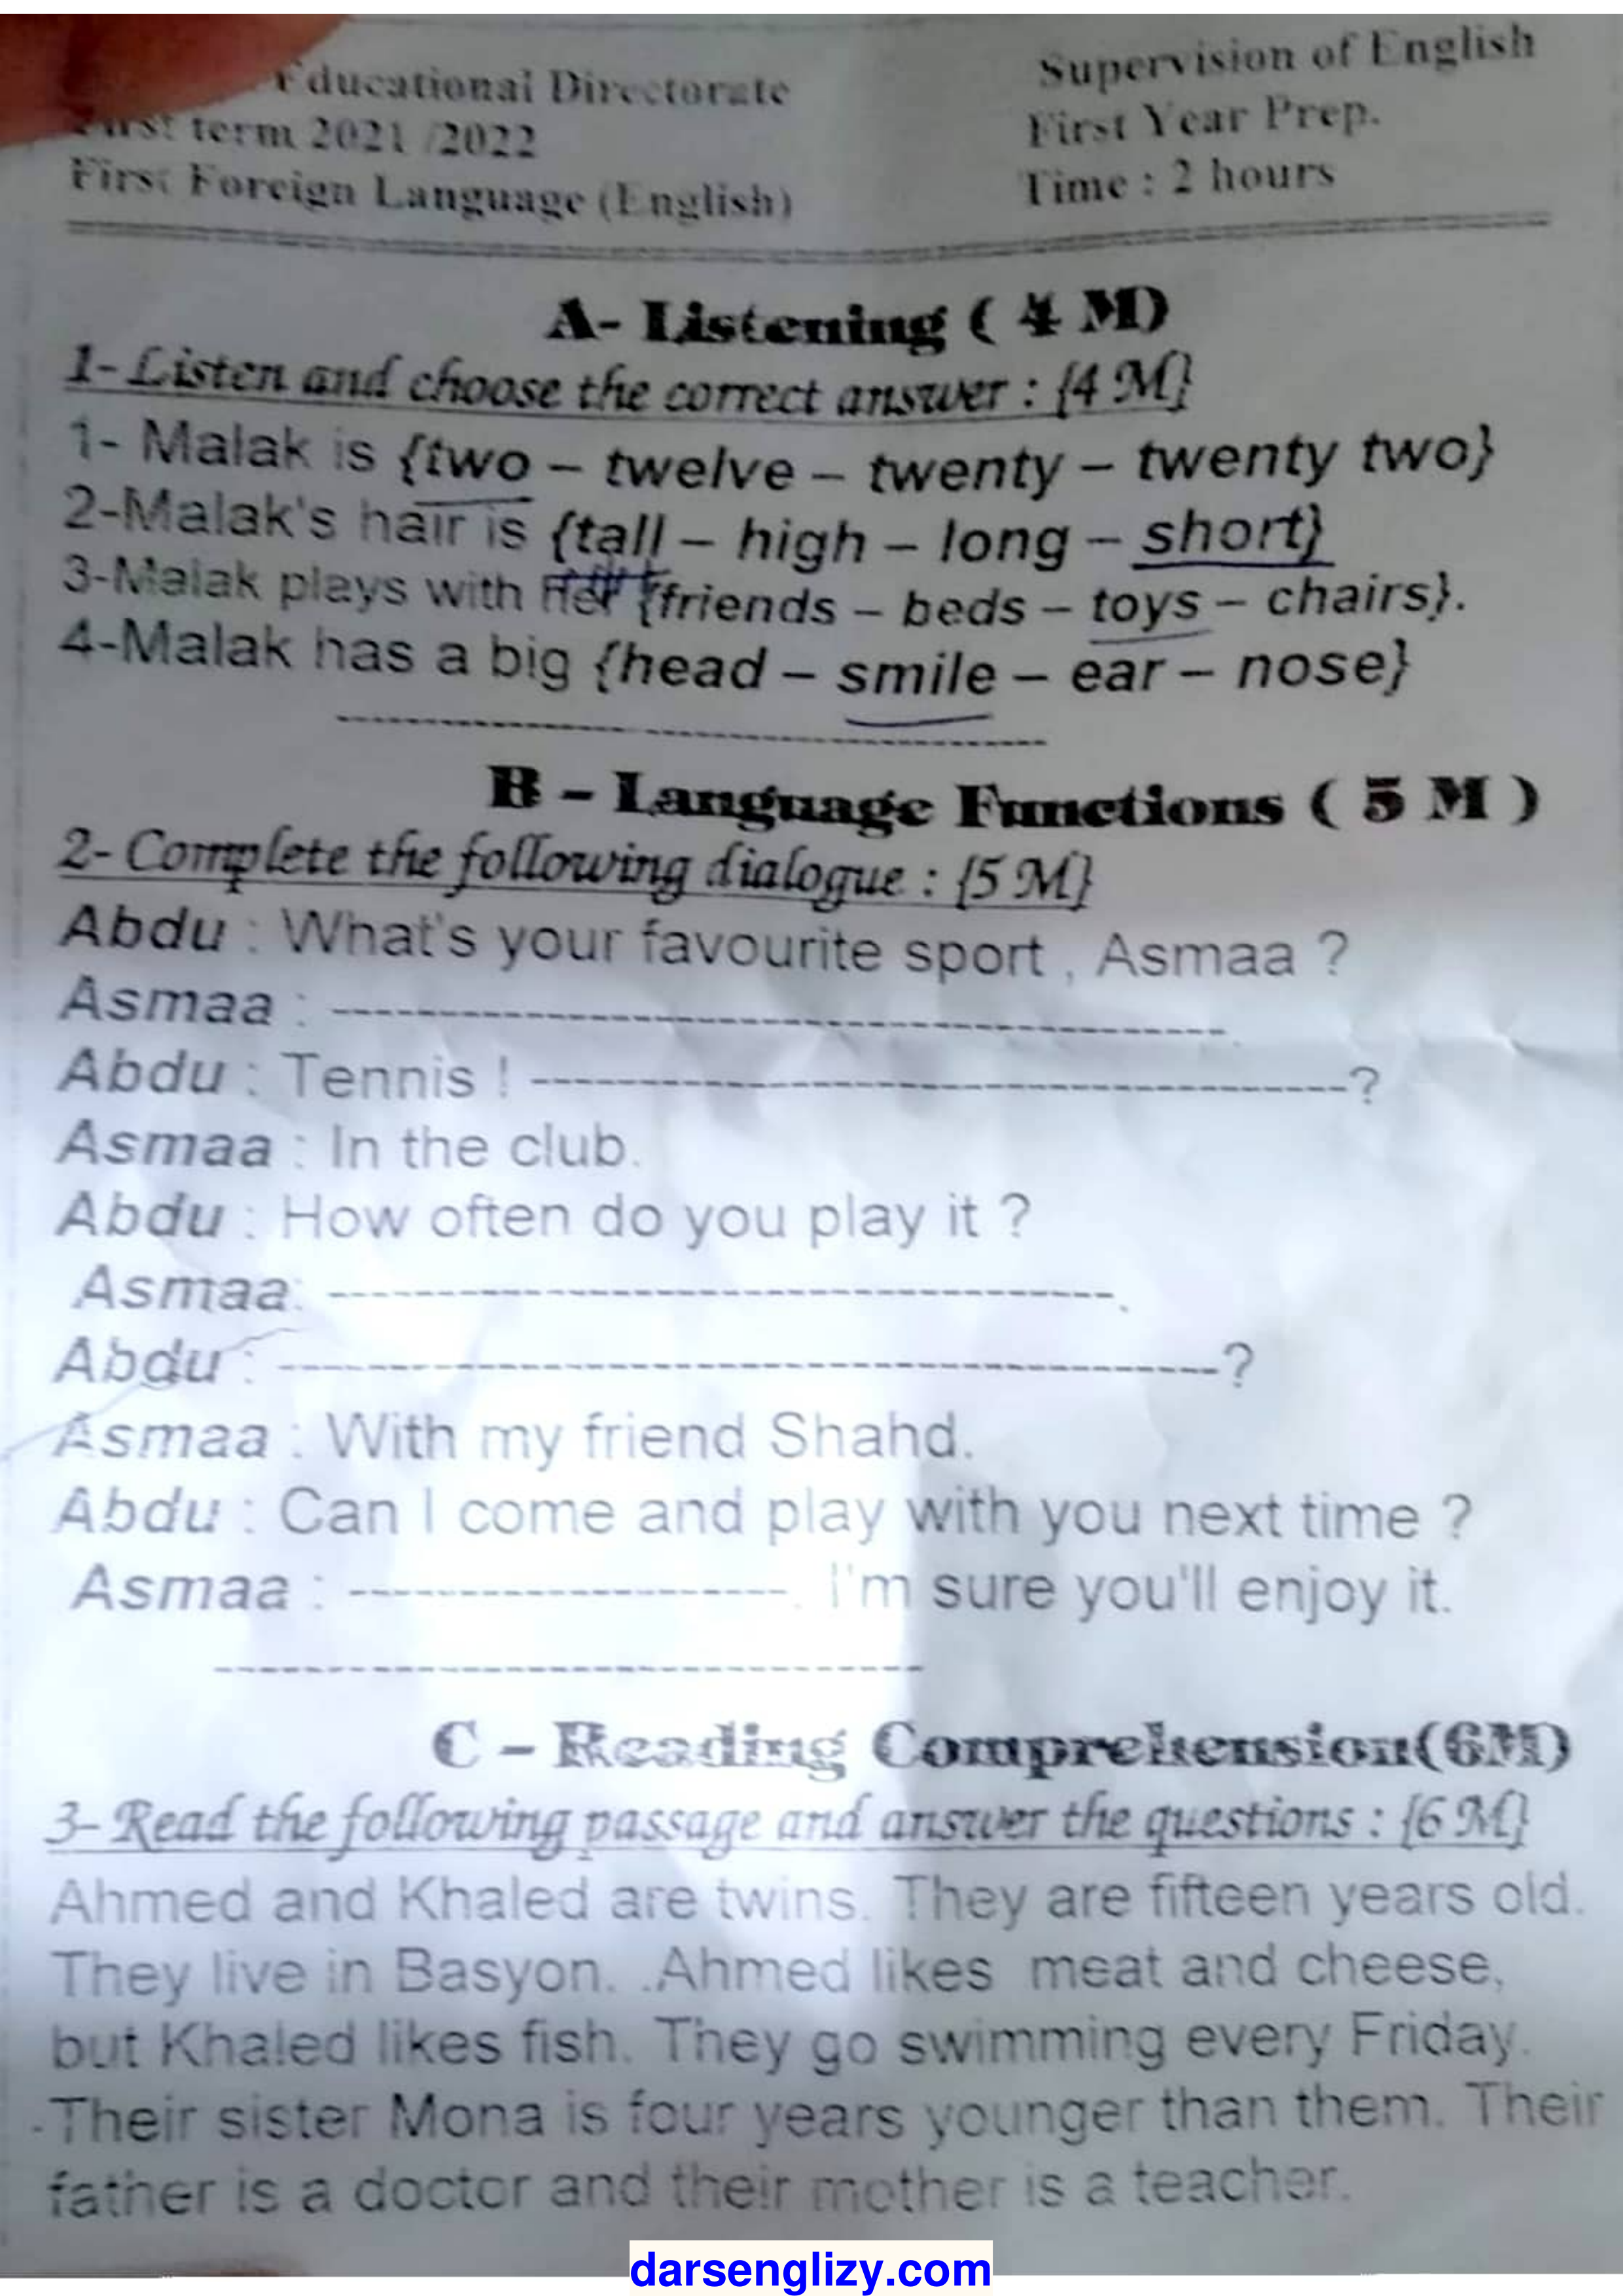 Educational Directorate
Supervision of English
First term 2021 /2022
First Year Prep.
First Foreign Language (English)
Time : 2 hours
A- Listening ( 4 M)
1- Listen and choose the correct answer : {4 M}
1- Malak is {two – twelve – twenty – twenty two}
2-Malak's hair is {tall – high – long – short}
3-Malak plays with her {friends – beds – toys – chairs}.
4-Malak has a big {head – smile – ear – nose}
B – Language Functions ( 5 M )
2- Complete the following dialogue : {5 M}
Abdu : What's your favourite sport , Asmaa ?
Asmaa : ------------------------------------------------.
Abdu : Tennis ! --------------------------------------------?
Asmaa : In the club.
Abdu : How often do you play it ?
Asmaa: ------------------------------------------.
Abdu : --------------------------------------------------?
Asmaa : With my friend Shahd.
Abdu : Can I come and play with you next time ?
Asmaa : ------------------------. I'm sure you'll enjoy it.
C – Reading Comprehension(6M)
3- Read the following passage and answer the questions : {6 M}
Ahmed and Khaled are twins. They are fifteen years old.
They live in Basyon. .Ahmed likes meat and cheese,
but Khaled likes fish. They go swimming every Friday.
Their sister Mona is four years younger than them. Their
father is a doctor and their mother is a teacher.
darsenglizy.com